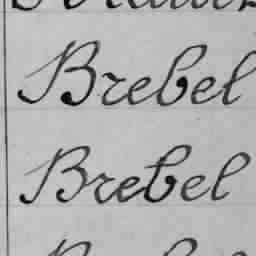 Brebel
Brebel